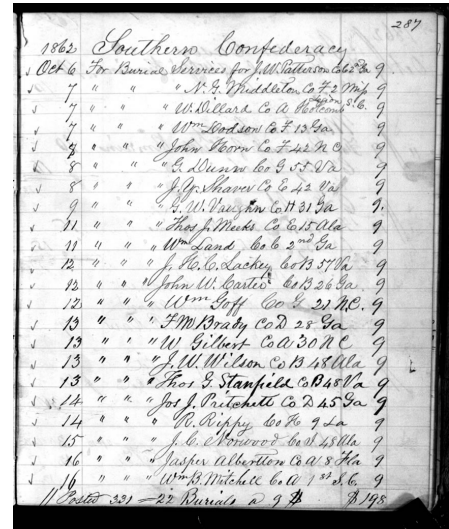 287
1862 Southern Confederacy
√ Oct 6 For Burial Services for J.W. Patterson Co C 2nd Ga 9
√ 7 " " " N. G. Middleton Co F 2 Mip 9
√ 7 " " " W. Dillard Co A Holcomb Legion S.C. 9
√ 7 " " " Wm Dodson Co F 13 Ga 9
√ 7 " " " John Horn Co F 42 N C 9
√ 8 " " " G. Dunn Co G 55 Va 9
√ 8 " " " J. Y. Shaver Co C 42 Va 9
√ 9 " " " G. W. Vaughn Co H 31 Ga 9.
√ 11 " " " Thos J. Meeks Co E 15 Ala 9
√ 11 " " " Wm Land Co C 2nd Ga 9
√ 12 " " " J. H. C. Lackey Co B 57 Va 9
√ 12 " " " John W. Carter Co B 26 Ga 9
√ 12 " " " Wm Goff Co G 21 N.C. 9
√ 13 " " " F M Brady Co D 28 Ga 9
√ 13 " " " W Gilbert Co A 30 N C 9
√ 13 " " " J. W. Wilson Co B 48 Ala 9
√ 13 " " " Thos G. Stanfield Co B 48 Va 9
√ 14 " " " Jos J. Pritchett Co D 45 Ga 9
√ 14 " " " R. Rippy Co H 9 La 9
√ 15 " " " J. C. Norwood Co I. 48 Ala 9
√ 16 " " " Jasper Albertton Co A 8 Fla 9
√ 16 " " " Wm B. Mitchell Co A 1st S. C. 9
// Posted 331 — 22 Burials a 9 $ $198